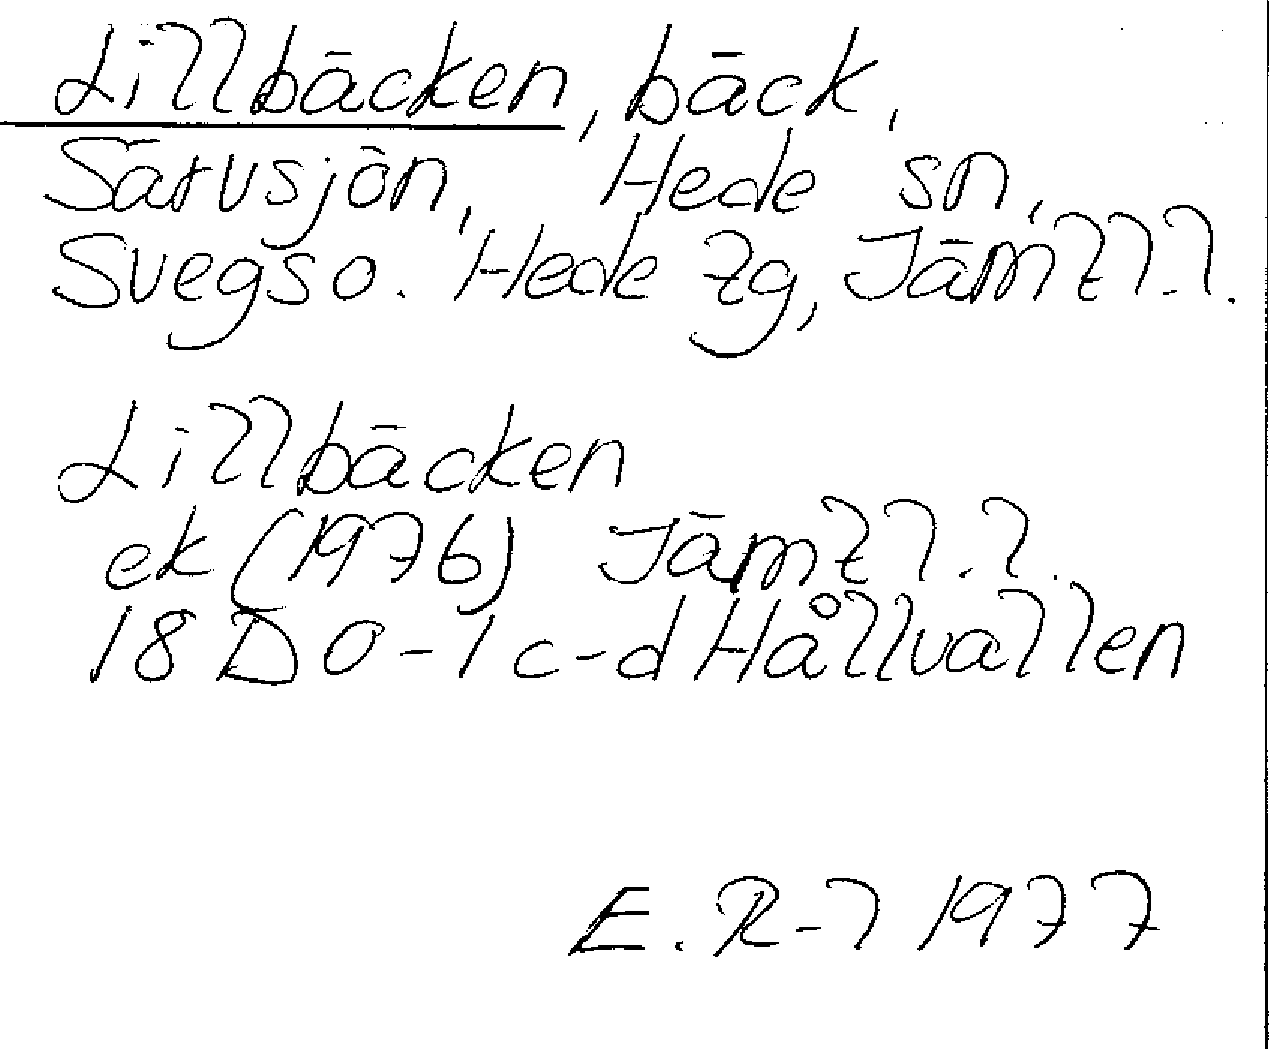 Lillbäcken, bäck,
Särvsjön, Hede sn,
Svegs o. Hede tg, Jämtl.l.
Lillbäcken
ek (1976) Jämtl.l.
18D 0-1 c-d Hållvallen
E. R-l 1977